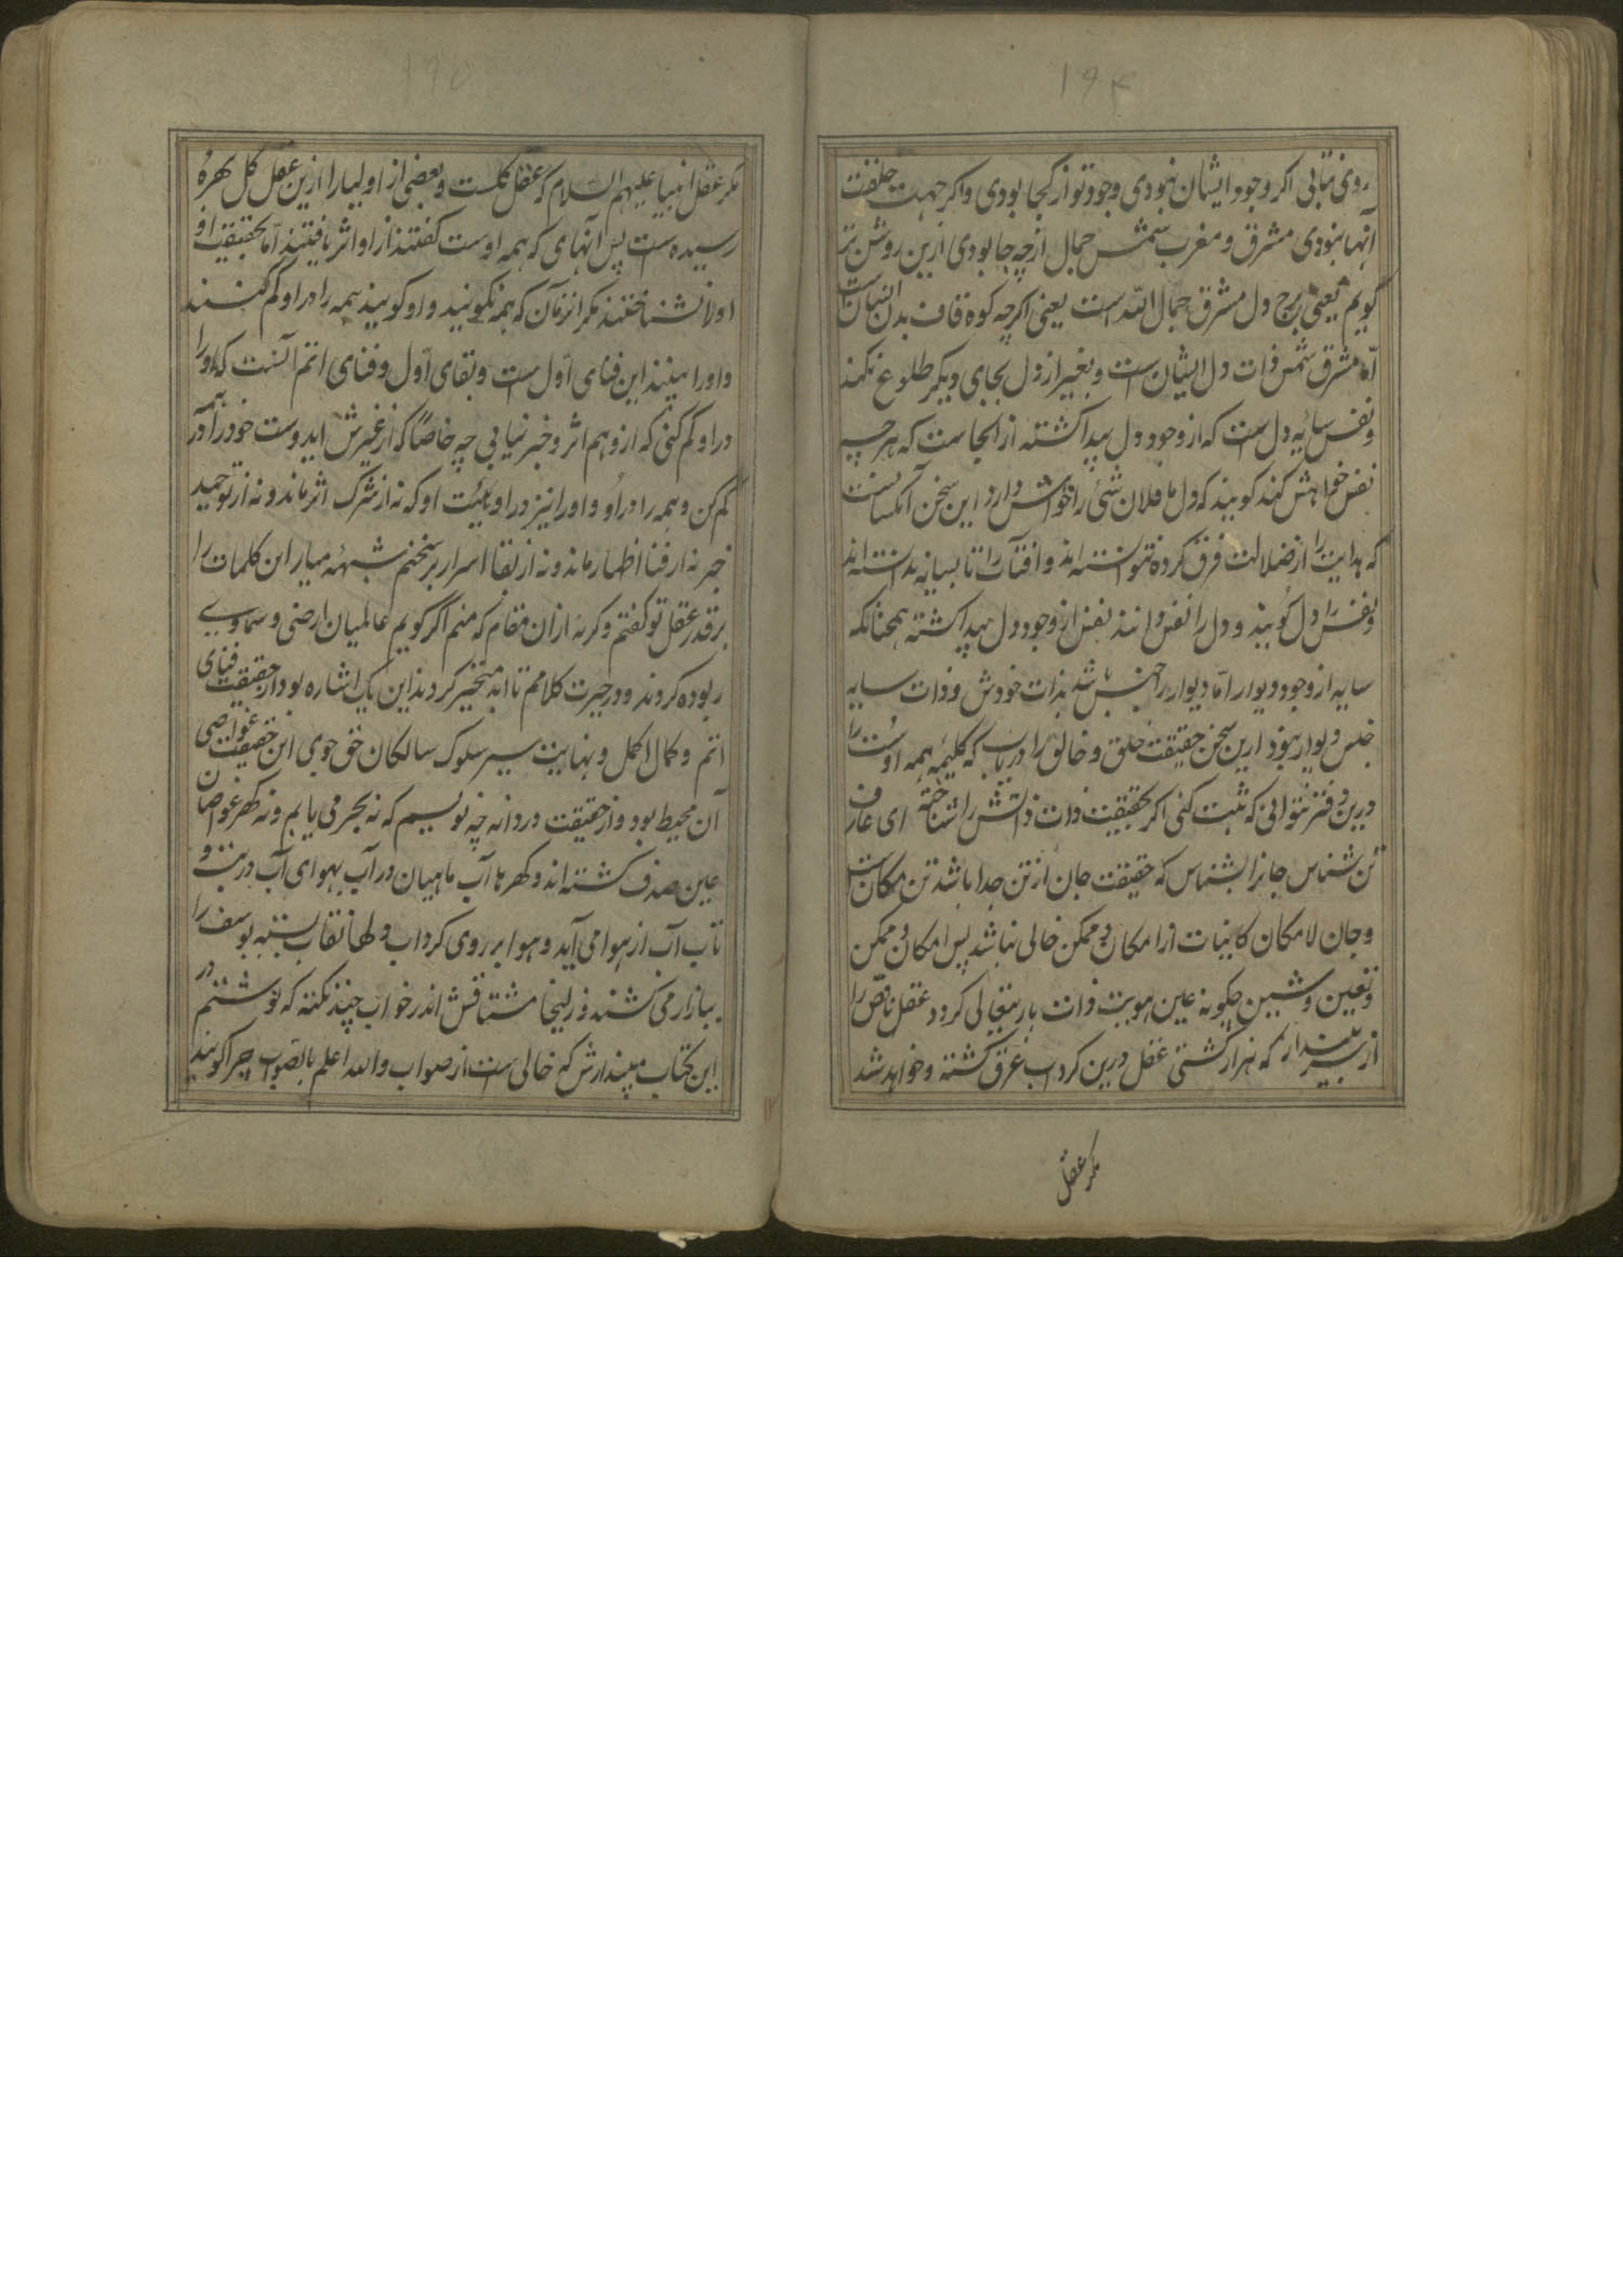 ۱۹۴
روی نتابی اکر وجود ایشان نبودی وجود تو از کجا بودی واکر جهت خلقت
آنها نبودی مشرق و مغرب شمس جمال از چه جا بودی ازین روشن تر
کویم یعنی برج دل مشرق جمال الله است یعنی اکرچه کوه قاف بدان
امّا مشرق شمس ذات دل ایشان است و بغیر از دل بجای دیکر طلوع نکند
و نفس سایه دل است که از وجود دل پیدا کشته از انجاست که هر چه
نفس خواهش کند کویند که دل ما فلان شئ را خواهش دارد این سخن آنکسانست
که هدایت را از ضلالت فرق کرده نتوانسته اند و افتاب را تا بسایه ندانسته اند
و نفس را دل کویند و دل را نفس دانند نفس از وجود دل پیدا کشته همچنانکه
سایه از وجود دیوار امّا دیوار را جنبش باشد بذات خودش و ذات سایه
جنس دیوار نبود ازین سخن حقیقت خلق و خالق را دریاب که کلیمه همه اوست را
درین دفتر نتوانی که ثبت کنی اکر بحقیقت ذات ذاتش را شناخته ای عارف
تن شناس جانرا بشناس که حقیقت جان از تن جدا باشد تن مکان است
و جان لامکان کاینات از امکان و ممکن خالی نباشد پس امکان و ممکن
و تعین و شین چکونه عین هویت ذات باریتعالی کردد عقل ناقص را
از سر پندار که هزار کشتی عقل درین کرداب غرق کشته و خواهد شد
مکر عقل
۱۹۵
مکر عقل انبیا علیهم السلام که عقل کلست و بعضی از اولیا را ازین عقل کل بهرهٔ
رسیده ست پس آنهای که همه اوست کفتند از او اثر یافتند امّا بحقیقت او
او را نشناختند مکر انزمان که همه نکویند و او کویند همه را در او کم کنند
و او را بینند این فنای اوّل است و بقای اوّل و فنای اتم آنست که او را
در او کم کنی که از وهم اثر و خبر نیابی چه خاصا که از غیرش اید وست خود را در همه
کم کن و همه را در او و او را نیز در او تا او که نه از شرک اثر ماند و نه از توحید
خبر نه از فنا اظهار ماند و نه از بقا اسرار بر سخنم شبههٔ میار این کلمات را
بر قدر عقل تو کفتم و کرنه ازان مقام که منم اگر کویم عالمیان ارضی و سماوی
ربوده کردند و در حیرت کلامم تا ابد متحیر کردند این یک اشاره بود از حقیقت فنای
اتم و کمال اکمل و نهایت سیر سلوک سالکان حق جوی این حقیقت غواصی
آن محیط بود و از حقیقت دردانه چه نویسم که نه بحر می یابم و نه کهر غواصان
عین صدف کشته اند و کهر ها آب ماهیان در آب بهوای آب در تب و
تاب آب از هوا می آید و هوا بر روی کرداب دلها نقاب بسته یوسف را
ببازار می کشند و زلیخا مشتاقش اندر خواب چند نکته که نوشتم در
این کتاب مپندارش که خالی ست از صواب والله اعلم بالصواب چرا کویند